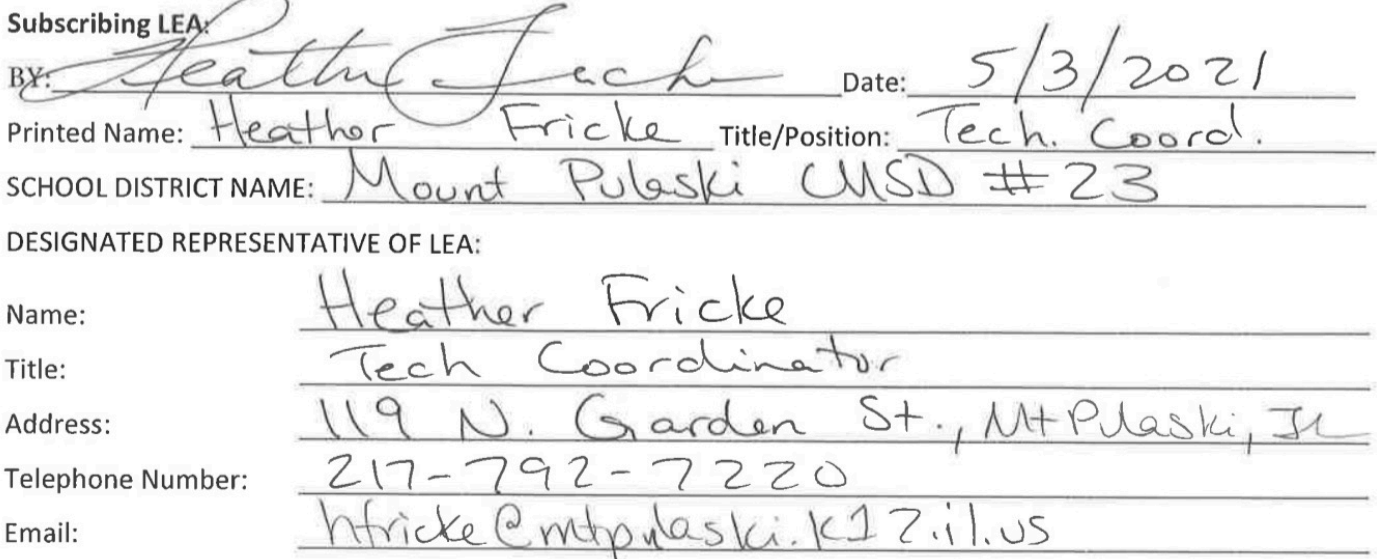 Subscribing LEA:
BY: Heather Date: 5/3/2021
Printed Name: Heather Fricke Title/Position: Tech. Coord.
SCHOOL DISTRICT NAME: Mount Pulaski CUSD #23
DESIGNATED REPRESENTATIVE OF LEA:
Name: Heather Fricke
Title: Tech Coordinator
Address: 119 N. Garden St., Mt Pulaski, IL
Telephone Number: 217-792-7220
Email: hfricke@mtpulaski.k12.il.us